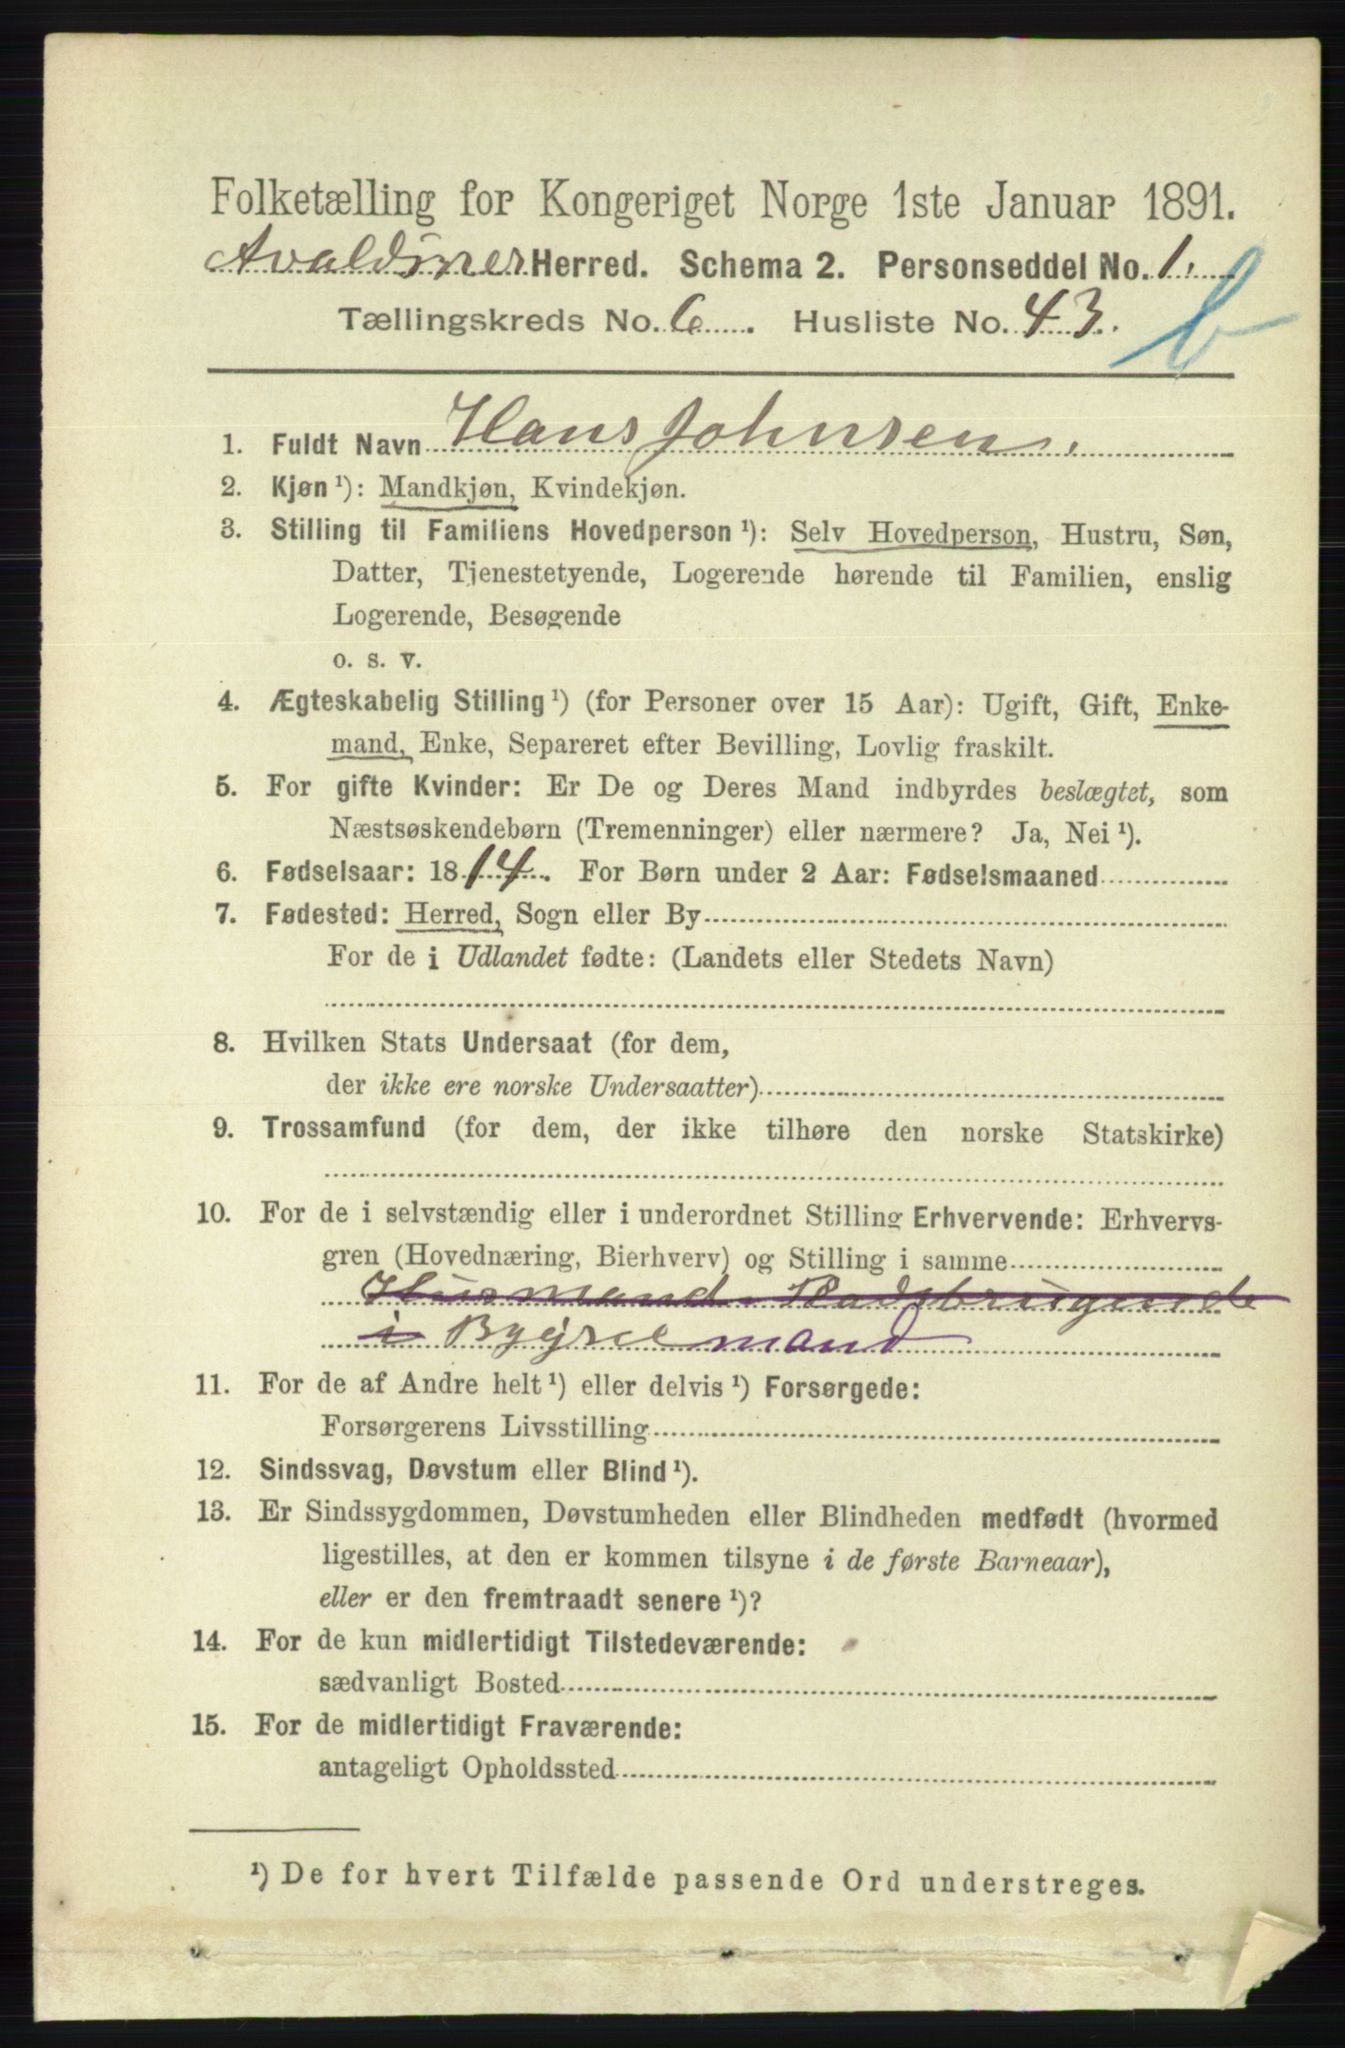 Folketælling for Kongeriget Norge 1ste Januar 1891.
Avaldsnes Herred. Schema 2. Personseddel No. 1.
Tællingskreds No. 6. Husliste No. 43. b
1. Fuldt Navn Hans Johnsen.
2. Kjøn ¹): Mandkjøn, Kvindekjøn.
3. Stilling til Familiens Hovedperson ¹): Selv Hovedperson, Hustru, Søn,
Datter, Tjenestetyende, Logerende hørende til Familien, enslig
Logerende, Besøgende
o. s. v.
4. Ægteskabelig Stilling ¹) (for Personer over 15 Aar): Ugift, Gift, Enke-
mand, Enke, Separeret efter Bevilling, Lovlig fraskilt.
5. For gifte Kvinder: Er De og Deres Mand indbyrdes beslægtet, som
Næstsøskendebørn (Tremenninger) eller nærmere? Ja, Nei ¹).
6. Fødselsaar: 1814. For Børn under 2 Aar: Fødselsmaaned
7. Fødested: Herred, Sogn eller By
For de i Udlandet fødte: (Landets eller Stedets Navn)
8. Hvilken Stats Undersaat (for dem,
der ikke ere norske Undersaatter)
9. Trossamfund (for dem, der ikke tilhøre den norske Statskirke)
10. For de i selvstændig eller i underordnet Stilling Erhvervende: Erhvervs-
gren (Hovednæring, Bierhverv) og Stilling i samme
Husmand Pladsbrugende
i Bygselmand
11. For de af Andre helt ¹) eller delvis ¹) Forsørgede:
Forsørgerens Livsstilling
12. Sindssvag, Døvstum eller Blind ¹).
13. Er Sindssygdommen, Døvstumheden eller Blindheden medfødt (hvormed
ligestilles, at den er kommen tilsyne i de første Barneaar),
eller er den fremtraadt senere ¹)?
14. For de kun midlertidigt Tilstedeværende:
sædvanligt Bosted
15. For de midlertidigt Fraværende:
antageligt Opholdssted
¹) De for hvert Tilfælde passende Ord understreges.